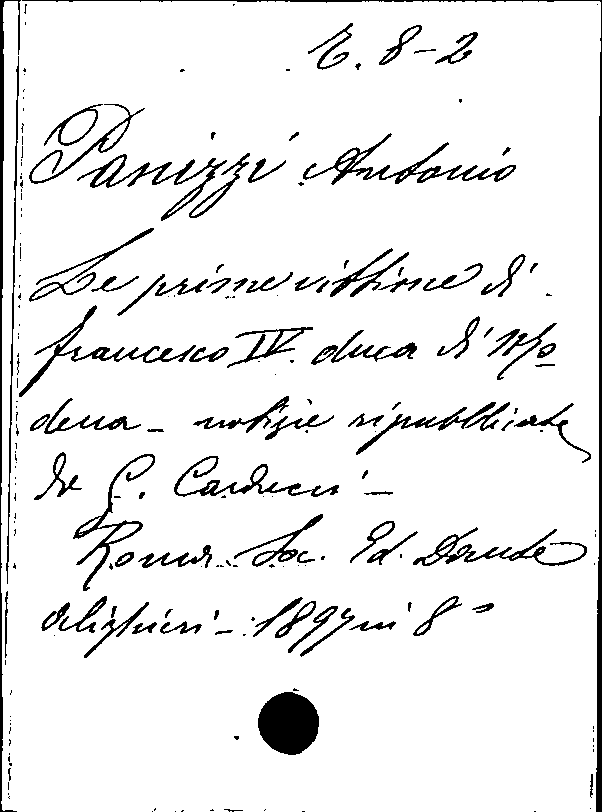 E. 8-2
Panizzi Antonio
Le prime vittime di
Francesco IV. duca di Mo
dena - notizie ripubblicate
da G. Carducci -
Roma. Soc. Ed. Dante
Alighieri - 1897 in 8°